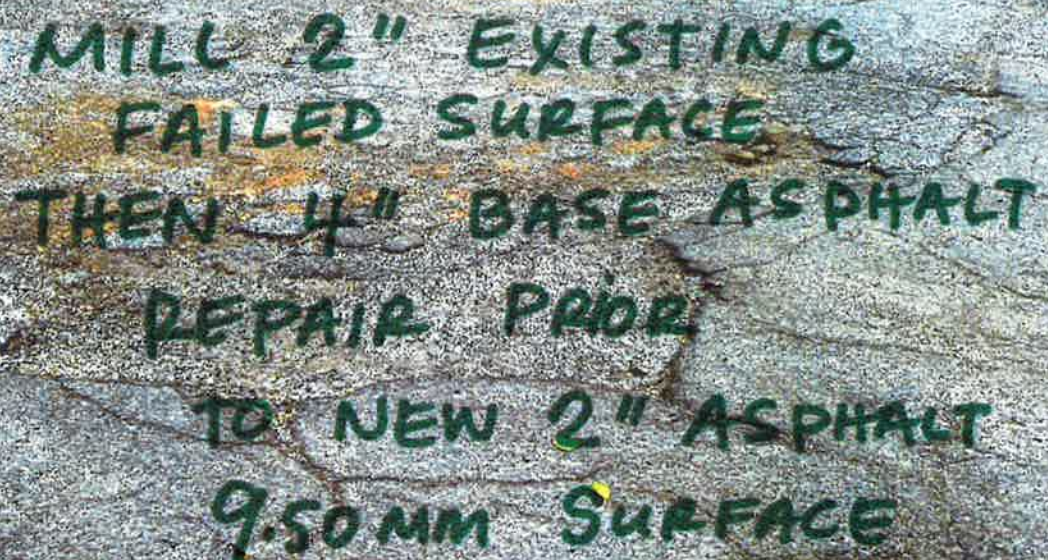 MILL 2" EXISTING
FAILED SURFACE
THEN 4" BASE ASPHALT
REPAIR PRIOR
TO NEW 2" ASPHALT
9.50 MM SURFACE